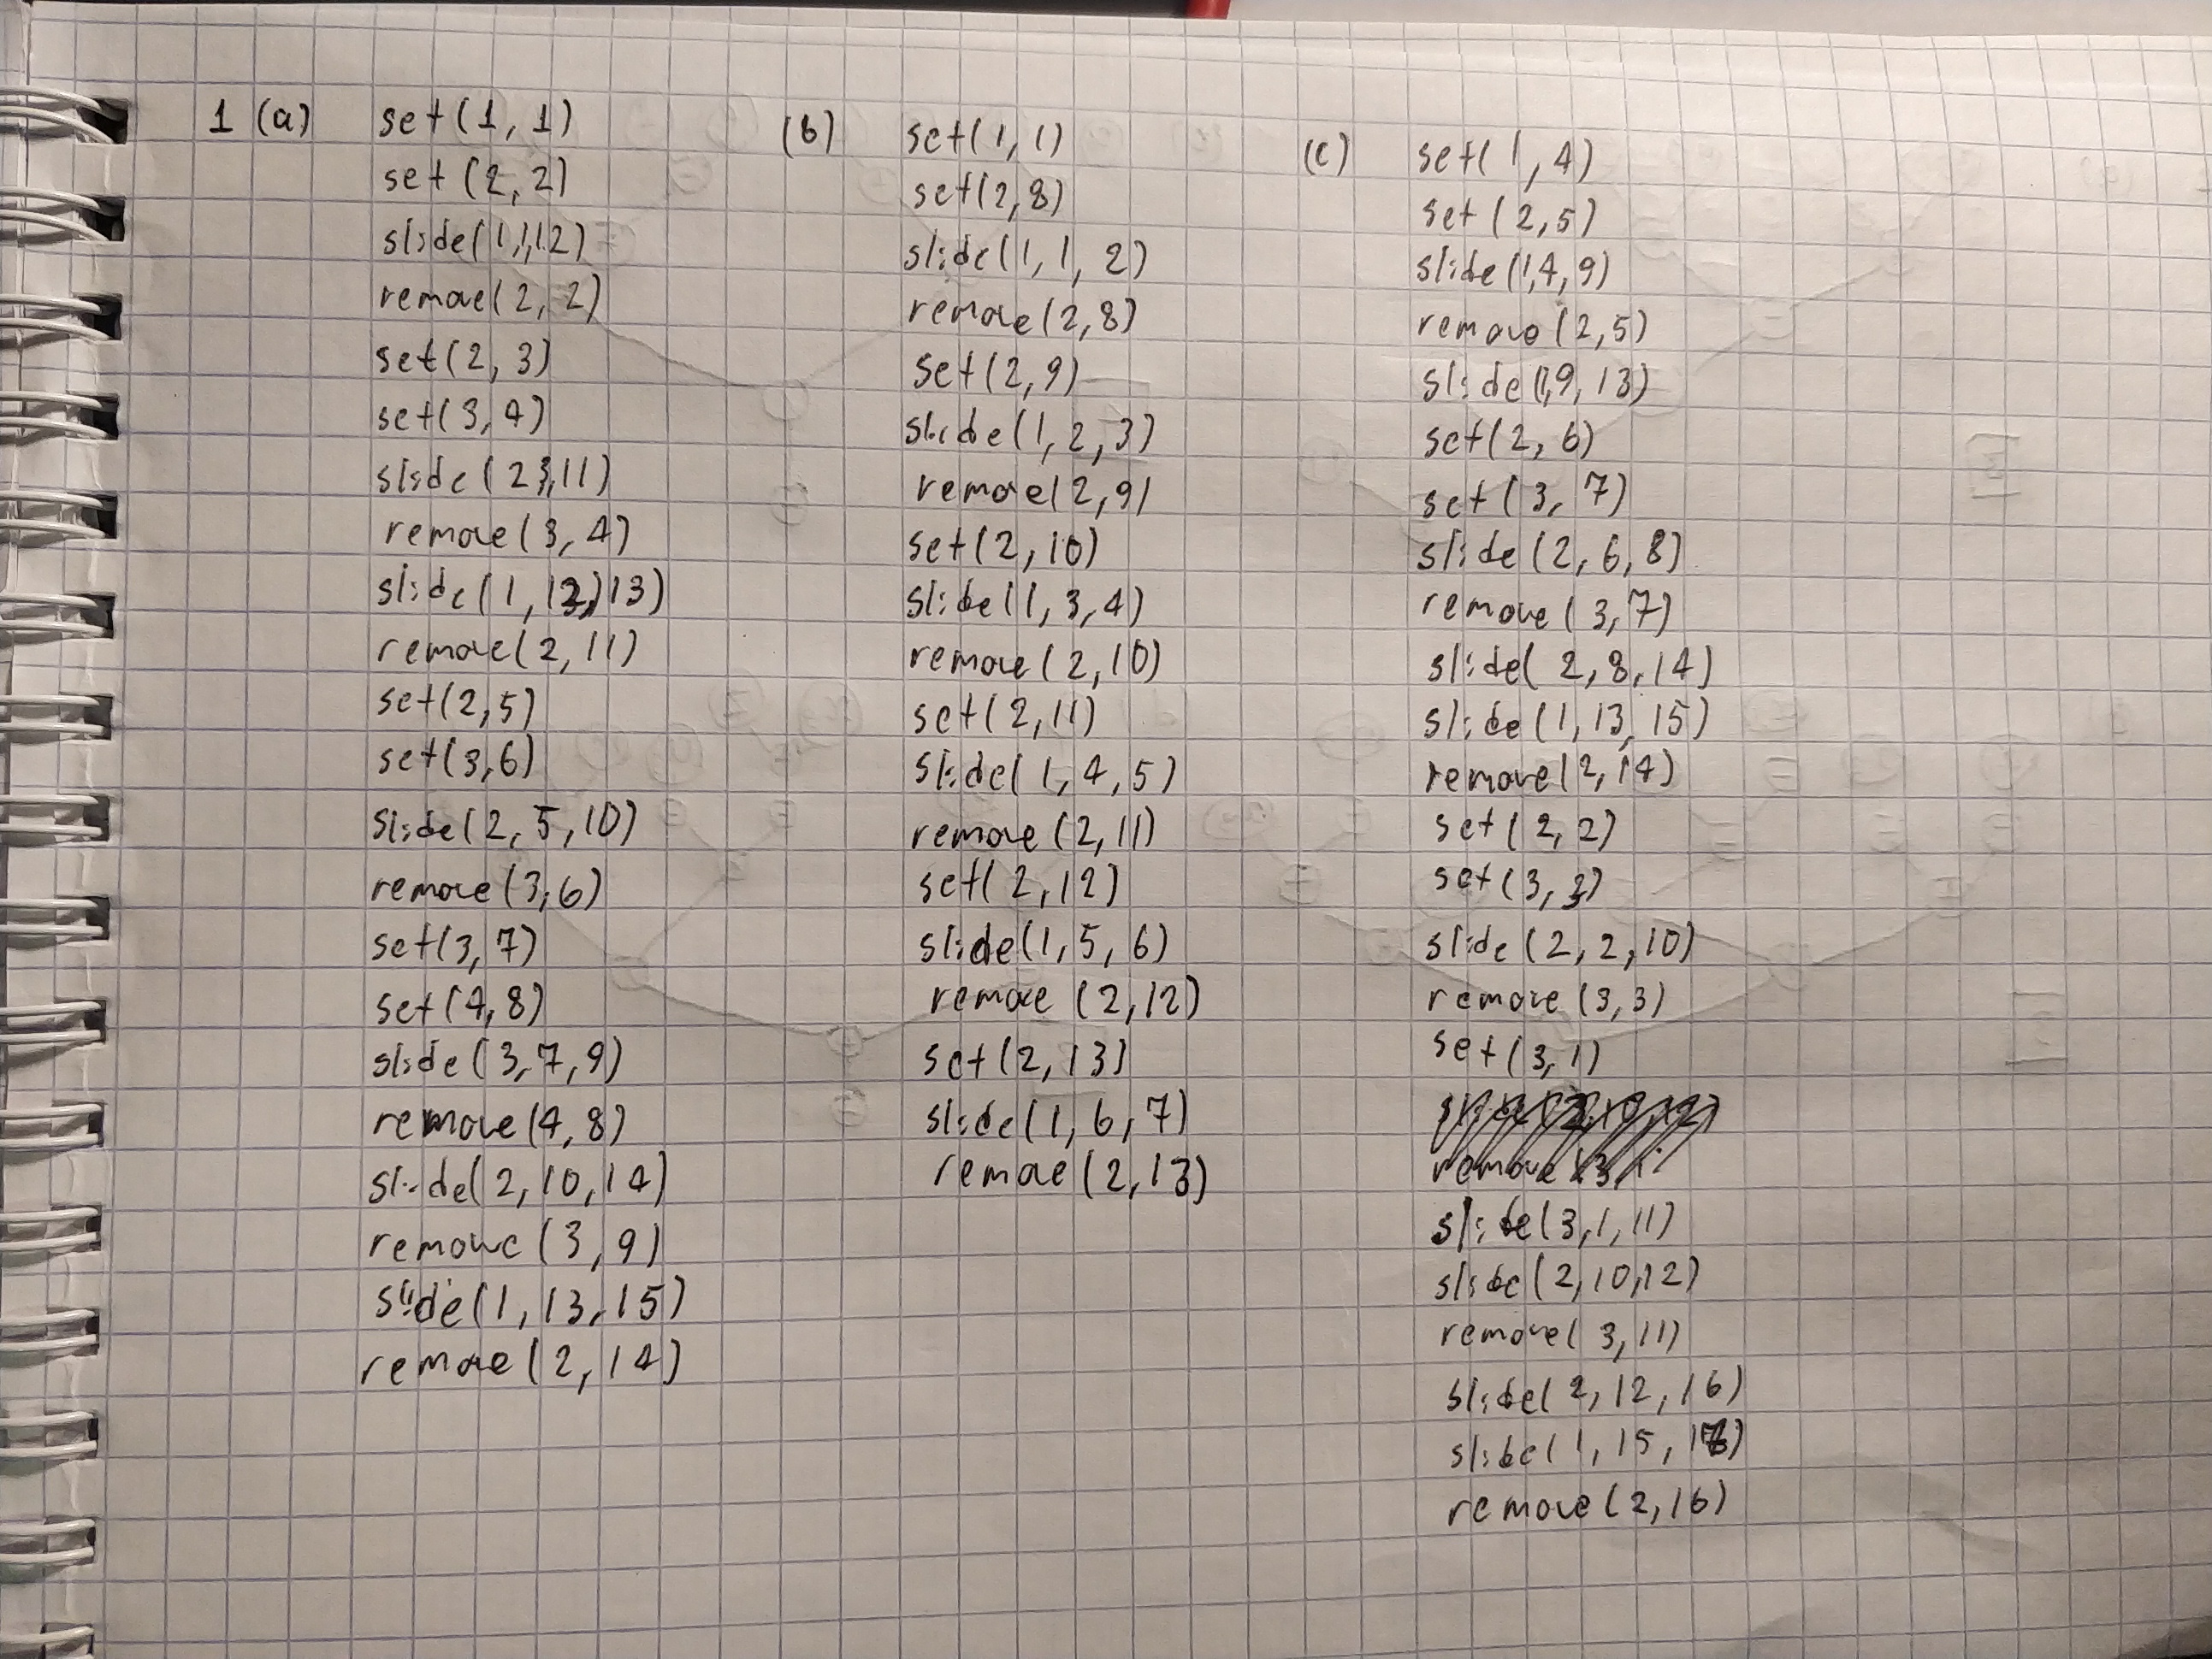 1 (a)
set(1, 1)
set (2, 2)
slide(1,1,12)
remove(2, 2)
set(2, 3)
set(3, 4)
slide (2 3,11)
remove (3, 4)
slide(1, 12,)13)
remove(2, 11)
set(2,5)
set(3,6)
slide(2, 5, 10)
remove (3,6)
set(3, 7)
set (4, 8)
slide (3, 7, 9)
remove (4, 8)
slide(2, 10, 14)
remove (3, 9)
slide(1, 13, 15)
remove (2, 14)
(b)
set(1, 1)
set(2, 8)
slide(1, 1, 2)
remove (2, 8)
set(2, 9)
slide(1, 2, 3)
remove(2, 9)
set(2, 10)
slide(1, 3, 4)
remove (2, 10)
set(2, 11)
slide( 1, 4, 5)
remove (2, 11)
set( 2, 12)
slide(1, 5, 6)
remove (2, 12)
set(2, 13)
slide(1, 6, 7)
remove (2, 13)
(c)
set( 1, 4)
set (2, 5)
slide (1,4, 9)
remove (2, 5)
slide (1,9, 13)
set(2, 6)
set (3, 7)
slide (2, 6, 8)
remove (3, 7)
slide( 2, 8, 14)
slide (1, 13, 15)
remove(2, 14)
set ( 2, 2)
set (3, 3)
slide (2, 2, 10)
remove (3, 3)
set (3, 1)
remove (3,
slide(3, 1, 11)
slide (2, 10, 12)
remove( 3, 11)
slide( 2, 12, 16)
slide( 1, 15,
remove (2, 16)